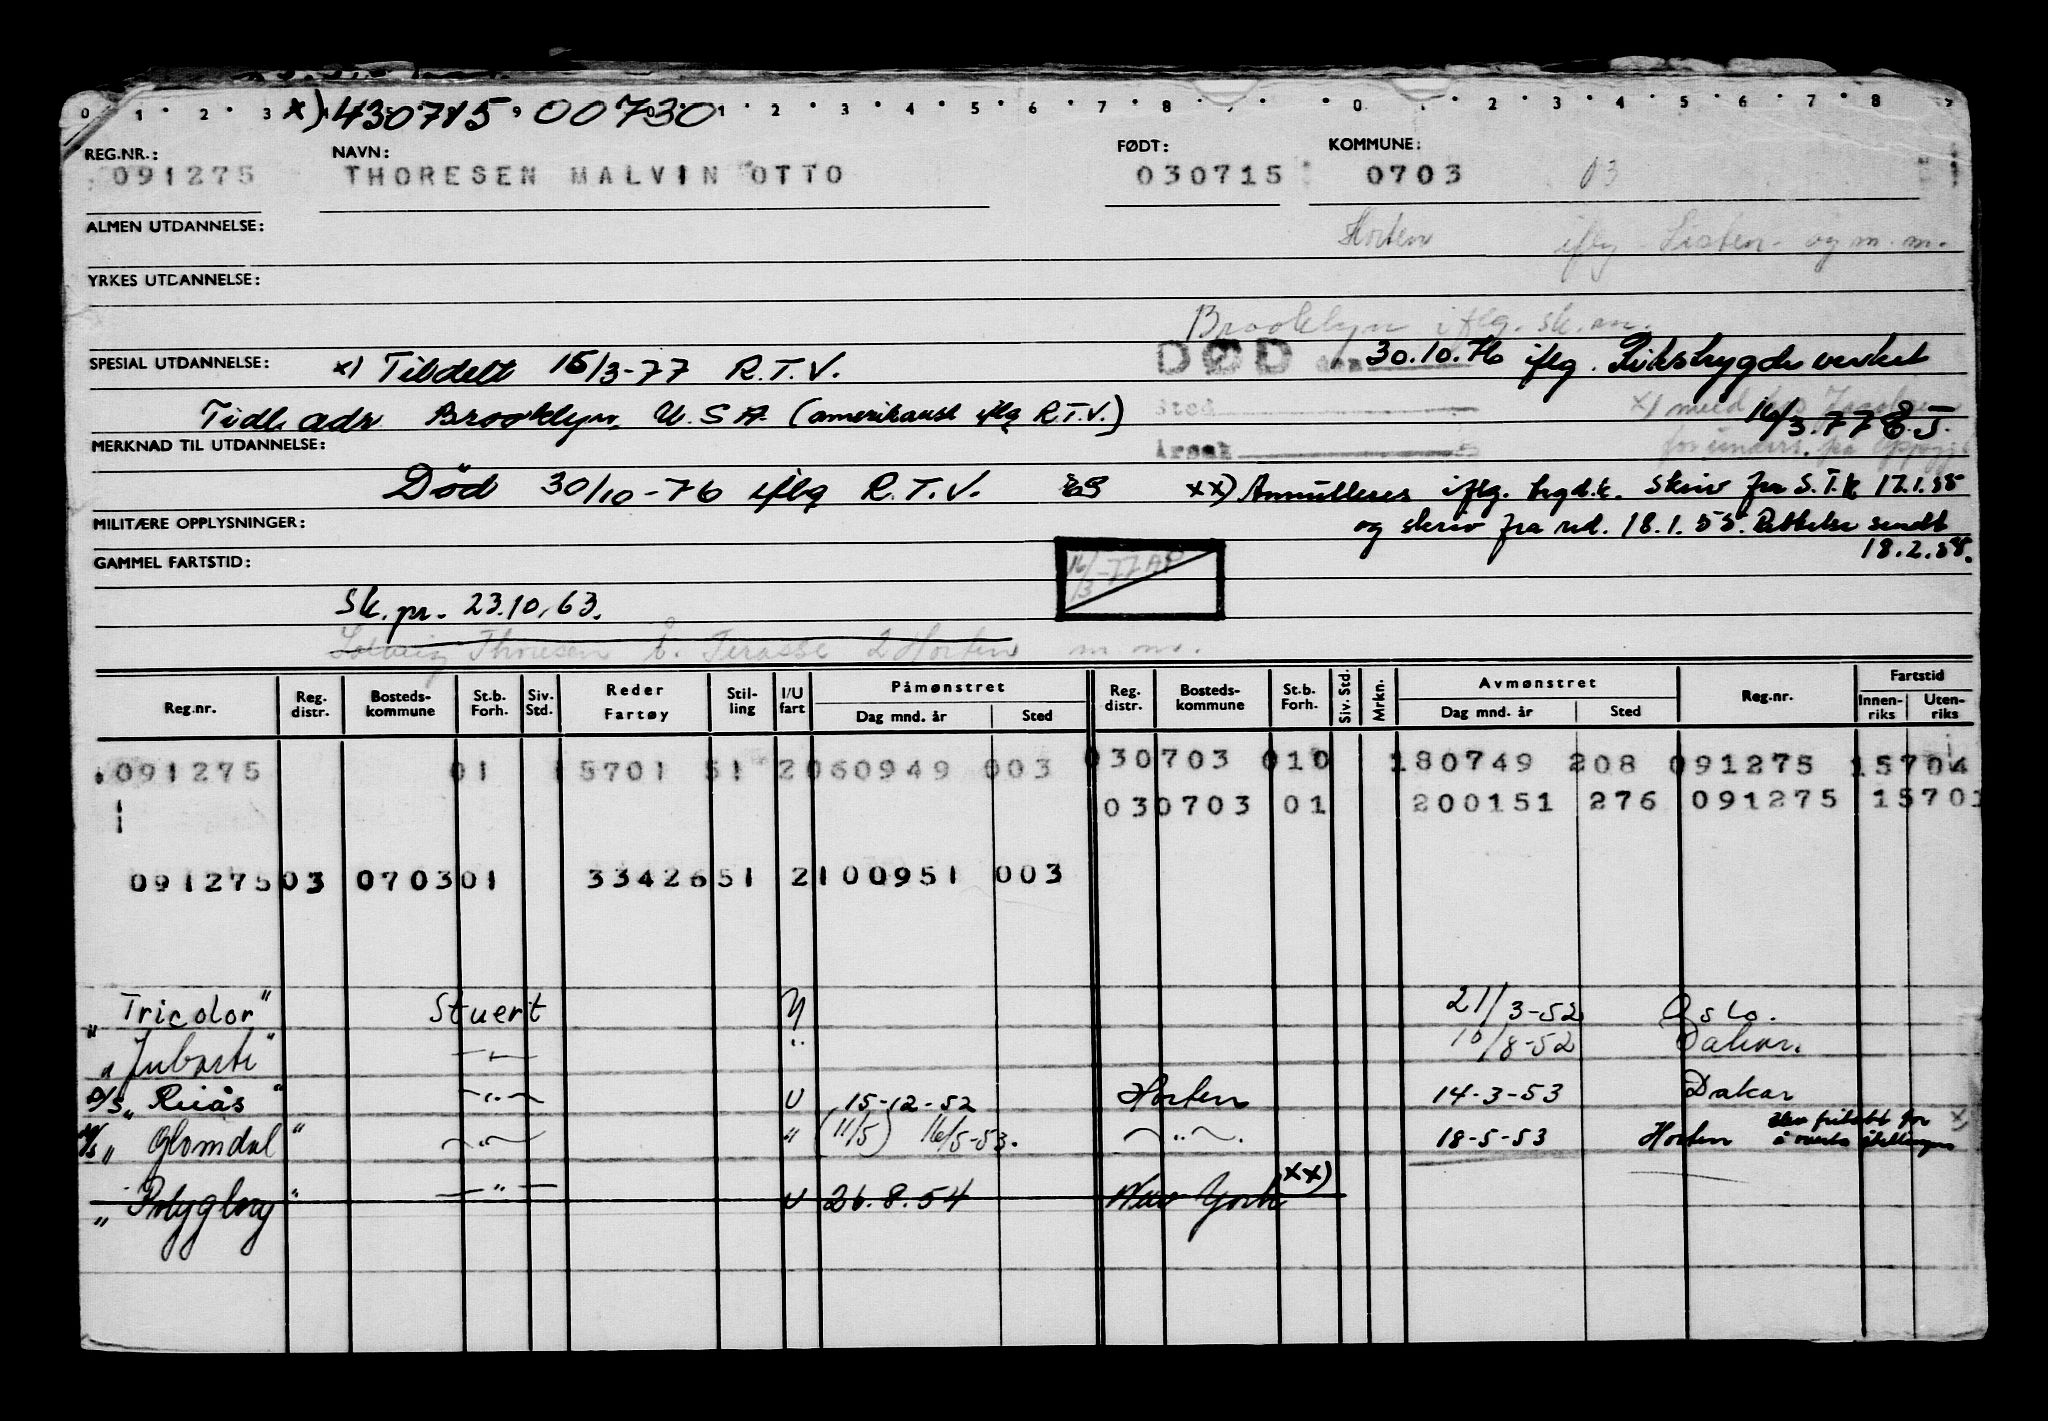 x) 430715 00730
REG.NR.: NAVN: FØDT: KOMMUNE:
091275 THORESEN MALVIN OTTO 030715 0703 03
ALMEN UTDANNELSE: Horten iflg. Listen og m.m.
YRKES UTDANNELSE:
Brooklyn iflg. sk.m.
SPESIAL UTDANNELSE: x) Tildelt 15/3-77 R.T.V. DØD den 30.10.76 iflg. Rikstrygdeverket
Tidl. adr Brooklyn, U.S.A. (amerikansk iflg R.T.V.) Sted 16/3.77 E.J.
MERKNAD TIL UTDANNELSE: Årsak
Død 30/10-76 iflg R.T.V. xx) Annulleres iflg. skriv fra S.T.K 17.1.55
MILITÆRE OPPLYSNINGER: og skriv fra red. 18.1.55. Rettelse sendt
18.2.55.
GAMMEL FARTSTID: 16/3-77
Sk. pr. 23.10.63.
Solveig Thoresen Terasse 2 Horten m.m.
Reg.nr. Reg. distr. Bosteds-kommune St.b. Forh. Siv. Std. Reder Fartøy Stil-ling I/U fart Påmønstret Dag mnd. år Sted Reg. distr. Bosteds-kommune St.b. Forh. Siv. Std. Mrkn. Avmønstret Dag mnd. år Sted Reg.nr. Fartstid Innen-riks Uten-riks
091275 01 5701 51 2 060949 003 030703 010 180749 208 091275 15704
030703 01 200151 276 091275 15701
091275 03 0703 01 33426 51 2 100951 003
"Tricolor" Stuert 21/3-52 Oslo.
"Jubarte" —"— " 10/8-52 Dakar.
D/S "Reiås" —"— U 15-12-52 Horten 14-3-53 Dakar
M/S "Glomdal" —"— " (11/5) 16/5-53. —"— 18-5-53 Horten
"Polyglory" —"— U 26.8.54 New York xx)